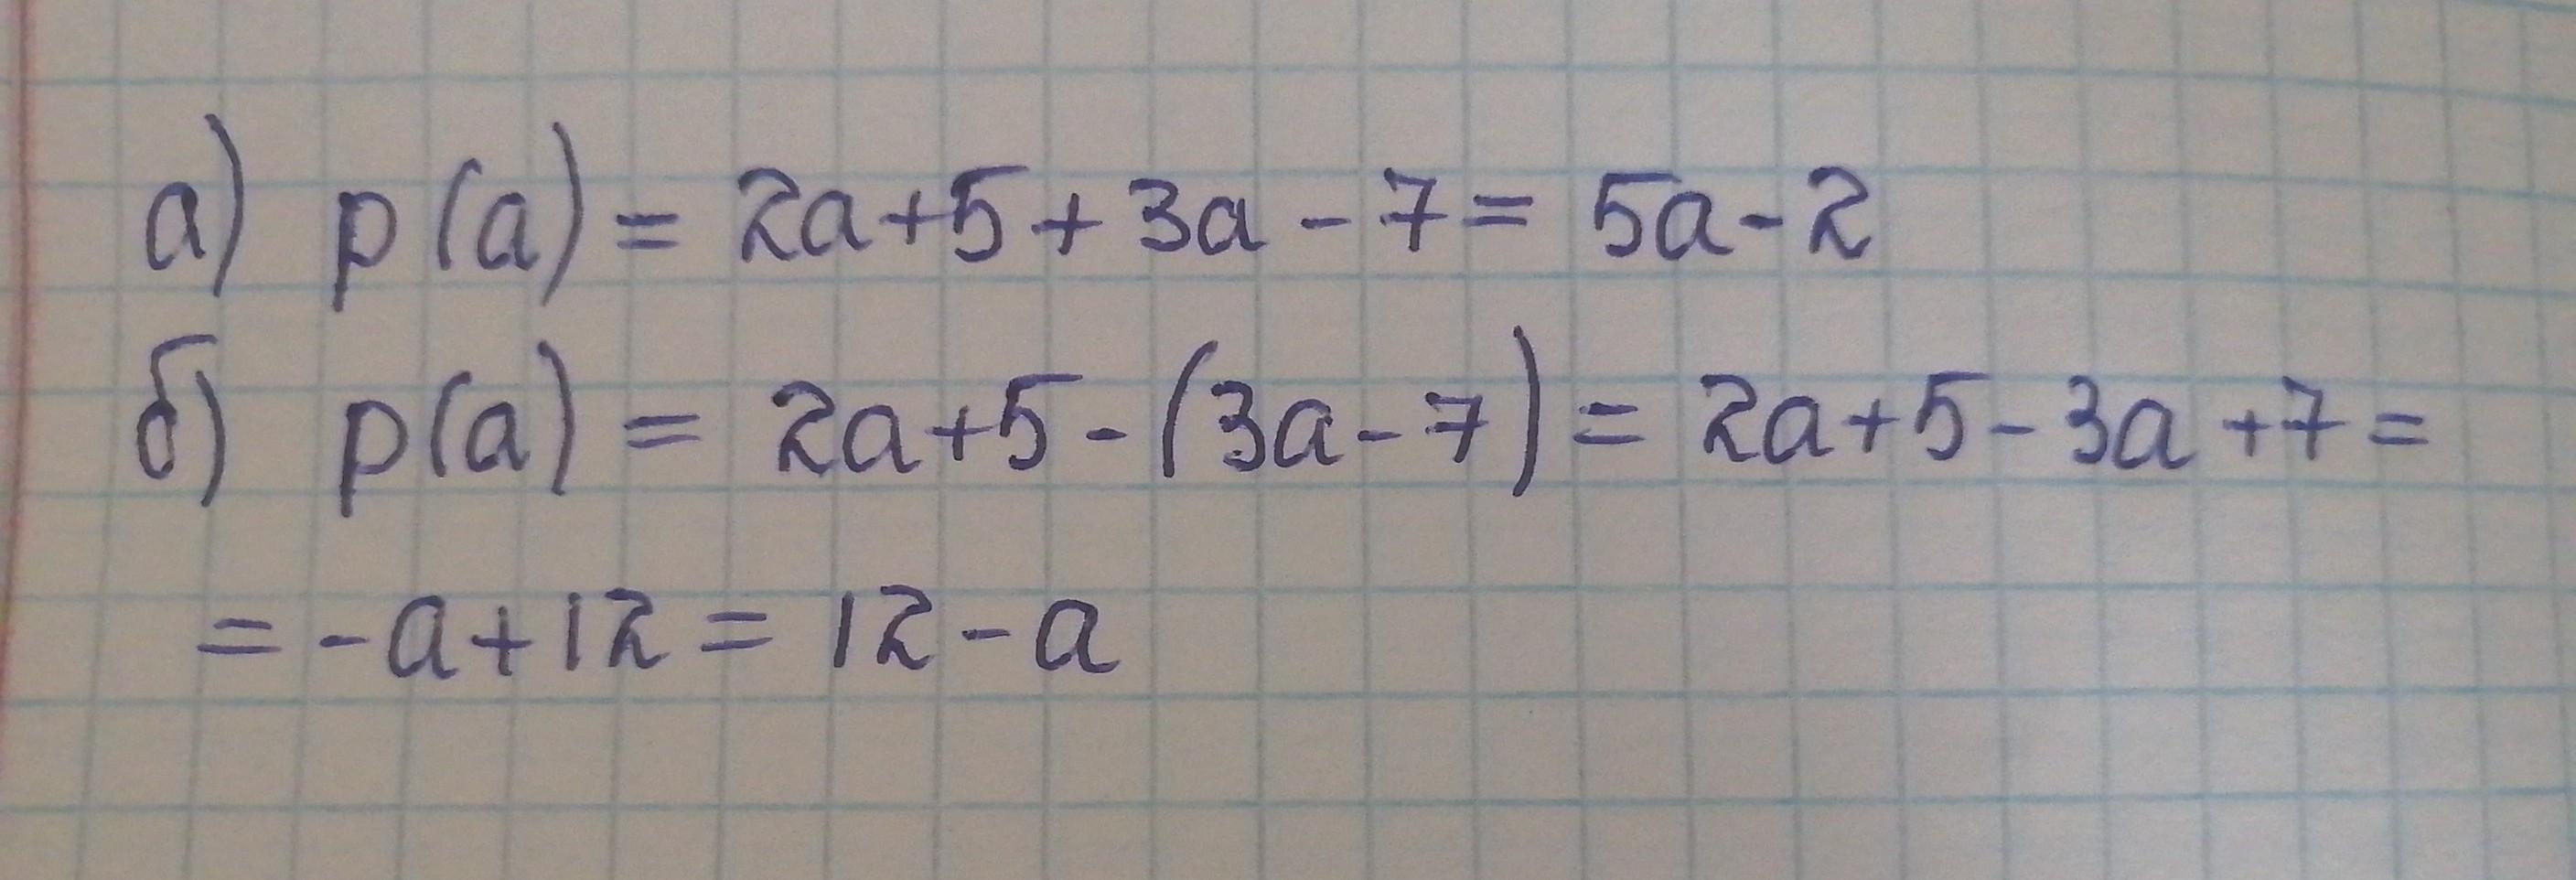 а) p(a) = 2a+5+3a-7= 5a-2
б) p(a) = 2a+5-(3a-7)= 2a+5-3a+7=
= -a+12= 12-a